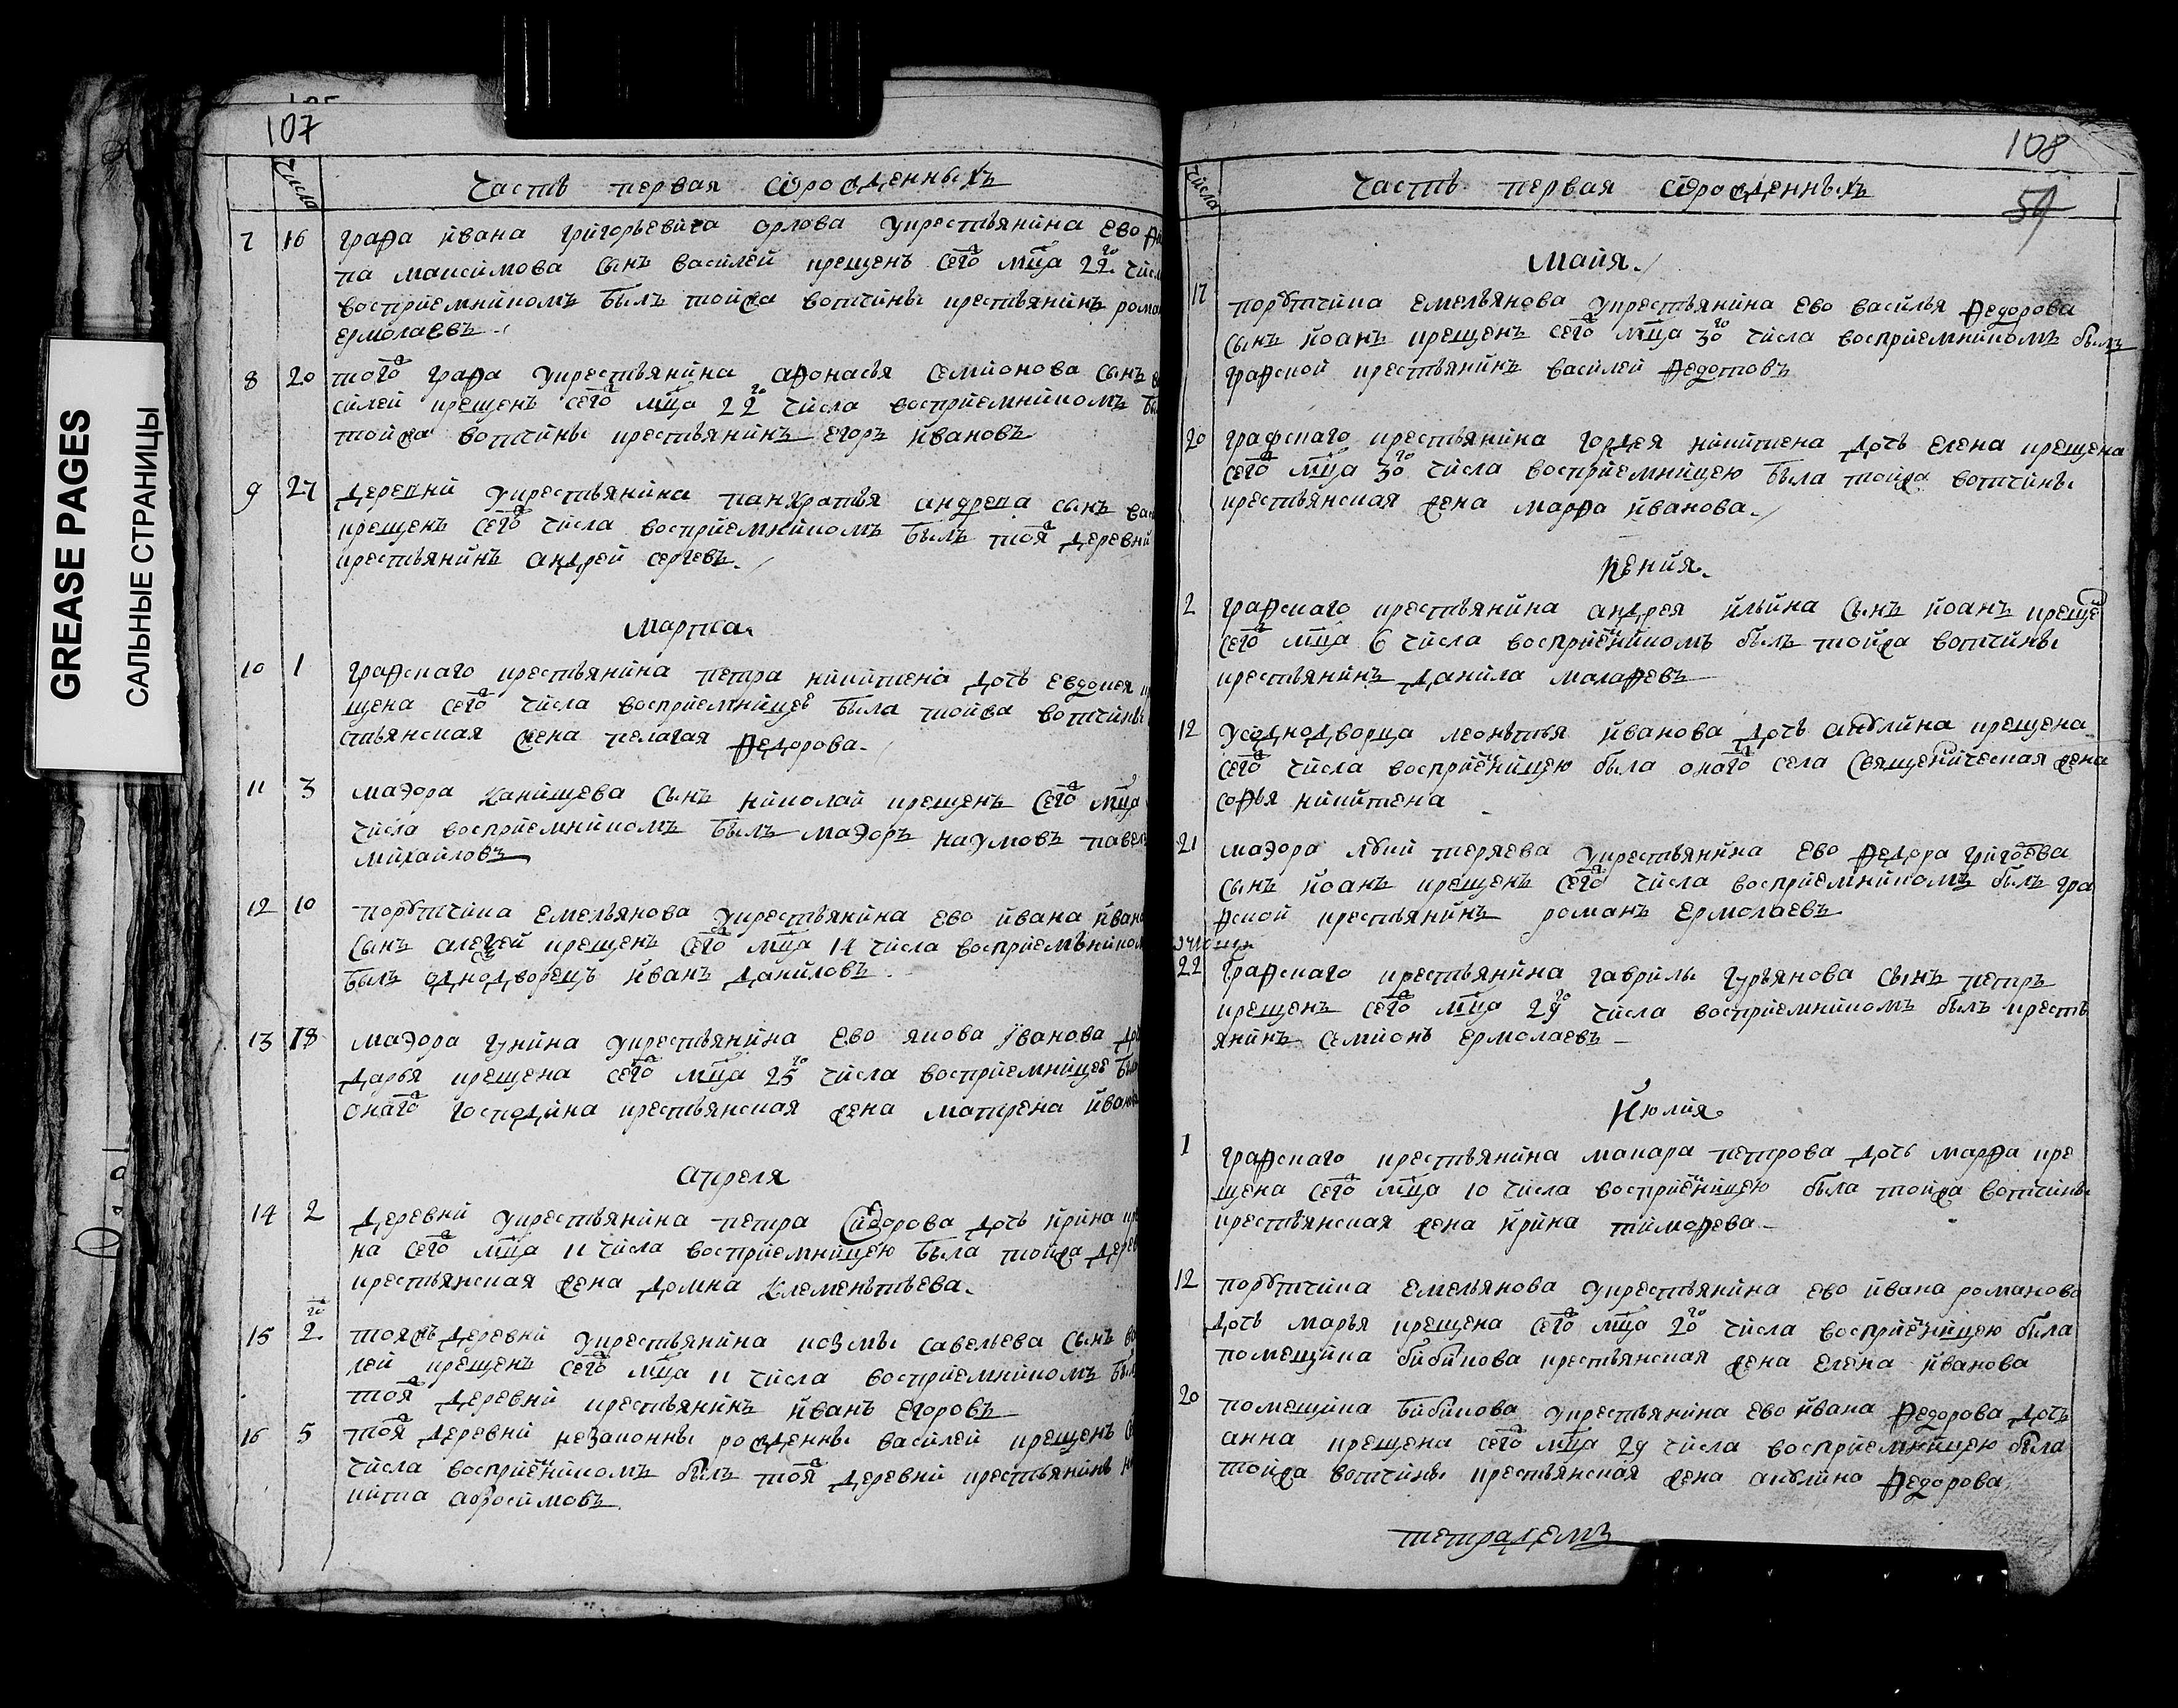 GREASE PAGES
САЛЬНЫЕ СТРАНИЦЫ
107
числа
часть первая ѡрожденныхъ
7 16 графа ивана григорьевича орлова укрестьянина ево
па максимова сынъ василей крещенъ сего мца 22го
восприемникомъ былъ тойжа вотчины крестьянинъ
ермолаевъ
8 20 того графа укрестьянина афонасья семионова сынъ
силей крещенъ сего мца 22го числа восприемникомъ
тойжа вотчины крестьянинъ егоръ ивановъ
9 27 деревни укрестьянина панкратья андрева сынъ
крещенъ сего числа восприемникомъ былъ тоя деревни
крестьянинъ андрей сергевъ
марта
10 1 графскаго крестьянина петра никитена дочь евдокея
щена сего числа восприемницею была тойжа вотчины
стьянская жена пелагая федорова
11 3 маэора канищева сынъ николай крещенъ сего мца
числа восприемникомъ былъ маэоръ наумовъ павелъ
михайловъ
12 10 порутчика емельянова укрестьянина ево ивана
сынъ алекѣей крещенъ сего мца 14 числа восприемъником
былъ однодворецъ иванъ даниловъ
13 18 маэора укрестьянина ево якова иванова
дарья крещена сего мца 25го числа восприемницею
онаго господина крестьянская жена матрена
апреля
14 2 деревни укрестьянина петра сидорова дочь ирина
на сего мца 11 числа восприемницею была тойжа
крестьянская жена домна клеменьтьева
15 2го тояжъ деревни укрестьянина козмы савельева сынъ
лей крещенъ сего мца 11 числа восприемникомъ
тоя деревни крестьянинъ иванъ егоровъ
16 5 тоя деревни незаконны рожденны василей крещенъ
числа восприемникомъ былъ тоя деревни крестьянинъ
китка аѳросимовъ
108
59
числа
часть первая ѡрожденныхъ
майя
17 порутчика емельянова укрестьянина ево василья федорова
сынъ иоанъ крещенъ сего мца 30го числа восприемникомъ былъ
графской крестьянинъ василей федотовъ
20 графскаго крестьянина гордея никитена дочь елена крещена
сего мца 30го числа восприемницею была тойжа вотчины
крестьянская жена марфа иванова
июния
2 графскаго крестьянина андрея ильина сынъ иоанъ креще
сего мца 6 числа восприемникомъ былъ тойжа вотчины
крестьянинъ данила малафевъ
12 уоднодворца леонътья иванова дочь акулина крещена
сего числа восприемницею была онаго села священическая жена
софья никитена
21 маэора укрестьянина ево федора григоева
сынъ иоанъ крещенъ сего числа восприемникомъ былъ гра
фской крестьянинъ романъ ермолаевъ
22 графскаго крестьянина гаврилы гурьянова сынъ петръ
крещенъ сего мца 29го числа восприемникомъ былъ кресть
янинъ семионъ ермолаевъ
июлия
1 графскаго крестьянина макара петрова дочь марфа кре
щена сего мца 10 числа восприемницею была тойжа вотчины
крестьянская жена ирина тимофева
12 порутчика емельянова укрестьянина ево ивана романова
дочь марья крещена сего мца 20го числа восприемницею была
помещика бибикова крестьянская жена елена иванова
20 помещика бибикова укрестьянина ево ивана федорова дочь
анна крещена сего мца 29 числа восприемницею была
тойжа вотчины крестьянская жена акулина федорова